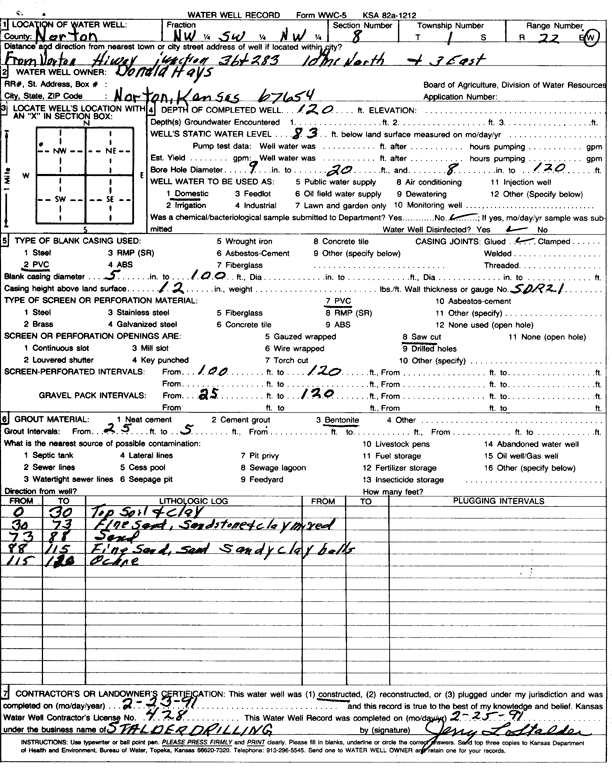 WATER WELL RECORD Form WWC-5 KSA 82a-1212
1 LOCATION OF WATER WELL: Fraction Section Number Township Number Range Number
County: Norton NW ¼ SW ¼ NW ¼ 8 T 1 S R 22 E/W
Distance and direction from nearest town or city street address of well if located within city?
From Norton Hiway junction 36+283 10mi North + 3 East
2 WATER WELL OWNER: Donald Hays
RR#, St. Address, Box # : Board of Agriculture, Division of Water Resources
City, State, ZIP Code : Norton, Kansas 67654 Application Number:
3 LOCATE WELL'S LOCATION WITH AN "X" IN SECTION BOX:
N
NW NE
W E
SW SE
S
1 Mile
4 DEPTH OF COMPLETED WELL 120 ft. ELEVATION:
Depth(s) Groundwater Encountered 1. ft. 2. ft. 3. ft.
WELL'S STATIC WATER LEVEL 83 ft. below land surface measured on mo/day/yr
Pump test data: Well water was ft. after hours pumping gpm
Est. Yield gpm: Well water was ft. after hours pumping gpm
Bore Hole Diameter 9 in. to 20 ft., and 8 in. to 120 ft.
WELL WATER TO BE USED AS: 5 Public water supply 8 Air conditioning 11 Injection well
1 Domestic 3 Feedlot 6 Oil field water supply 9 Dewatering 12 Other (Specify below)
2 Irrigation 4 Industrial 7 Lawn and garden only 10 Monitoring well
Was a chemical/bacteriological sample submitted to Department? Yes No ✓; If yes, mo/day/yr sample was sub-
mitted Water Well Disinfected? Yes ✓ No
5 TYPE OF BLANK CASING USED: 5 Wrought iron 8 Concrete tile CASING JOINTS: Glued ✓ Clamped
1 Steel 3 RMP (SR) 6 Asbestos-Cement 9 Other (specify below) Welded
2 PVC 4 ABS 7 Fiberglass Threaded
Blank casing diameter 5 in. to 100 ft., Dia in. to ft., Dia in. to ft.
Casing height above land surface 12 in., weight lbs./ft. Wall thickness or gauge No. SDR21
TYPE OF SCREEN OR PERFORATION MATERIAL: 7 PVC 10 Asbestos-cement
1 Steel 3 Stainless steel 5 Fiberglass 8 RMP (SR) 11 Other (specify)
2 Brass 4 Galvanized steel 6 Concrete tile 9 ABS 12 None used (open hole)
SCREEN OR PERFORATION OPENINGS ARE: 5 Gauzed wrapped 8 Saw cut 11 None (open hole)
1 Continuous slot 3 Mill slot 6 Wire wrapped 9 Drilled holes
2 Louvered shutter 4 Key punched 7 Torch cut 10 Other (specify)
SCREEN-PERFORATED INTERVALS: From 100 ft. to 120 ft., From ft. to ft.
From ft. to ft., From ft. to ft.
GRAVEL PACK INTERVALS: From 25 ft. to 120 ft., From ft. to ft.
From ft. to ft., From ft. to ft.
6 GROUT MATERIAL: 1 Neat cement 2 Cement grout 3 Bentonite 4 Other
Grout Intervals: From 25 ft. to 5 ft., From ft. to ft., From ft. to ft.
What is the nearest source of possible contamination: 10 Livestock pens 14 Abandoned water well
1 Septic tank 4 Lateral lines 7 Pit privy 11 Fuel storage 15 Oil well/Gas well
2 Sewer lines 5 Cess pool 8 Sewage lagoon 12 Fertilizer storage 16 Other (specify below)
3 Watertight sewer lines 6 Seepage pit 9 Feedyard 13 Insecticide storage
Direction from well? How many feet?
FROM TO LITHOLOGIC LOG FROM TO PLUGGING INTERVALS
0 30 Top Soil & clay
30 73 Fine Sand, Sandstone & clay mixed
73 88 Sand
88 115 Fine Sand, sand sandy clay balls
115 120 Ochre
7 CONTRACTOR'S OR LANDOWNER'S CERTIFICATION: This water well was (1) constructed, (2) reconstructed, or (3) plugged under my jurisdiction and was
completed on (mo/day/year) 2-23-91 and this record is true to the best of my knowledge and belief. Kansas
Water Well Contractor's License No. 428 This Water Well Record was completed on (mo/day/yr) 2-25-91
under the business name of STALDER DRILLING by (signature) Jerry L. Stalder
INSTRUCTIONS: Use typewriter or ball point pen. PLEASE PRESS FIRMLY and PRINT clearly. Please fill in blanks, underline or circle the correct answers. Send top three copies to Kansas Department
of Health and Environment, Bureau of Water, Topeka, Kansas 66620-7320. Telephone: 913-296-5545. Send one to WATER WELL OWNER and retain one for your records.